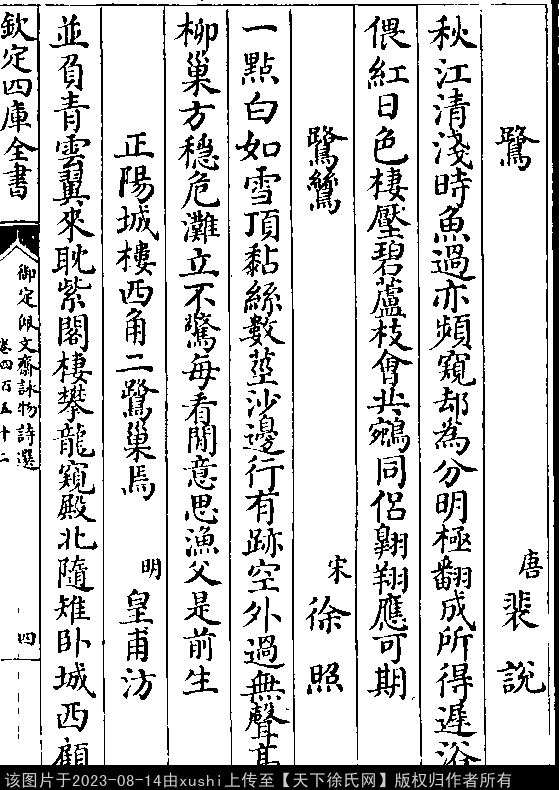 鷺
唐 裴說
秋江清淺時魚過亦頻窺却為分明極翻成所得遲浴
偎紅日色棲壓碧蘆枝會共鵷同侣翺翔應可期
鷺鷥
宋 徐照
一點白如雪頂黏絲數莖沙邊行有跡空外過無聲高
柳巢方穩危灘立不驚每看閒意思漁父是前生
正陽城樓西角二鷺巢焉
明 皇甫汸
並負青雲翼來耽紫閣棲攀龍窺殿北隨雉卧城西顧
欽定四庫全書
御定佩文齋詠物詩選
卷四百五十二
四
该图片于2023-08-14由xushi上传至【天下徐氏网】版权归作者所有